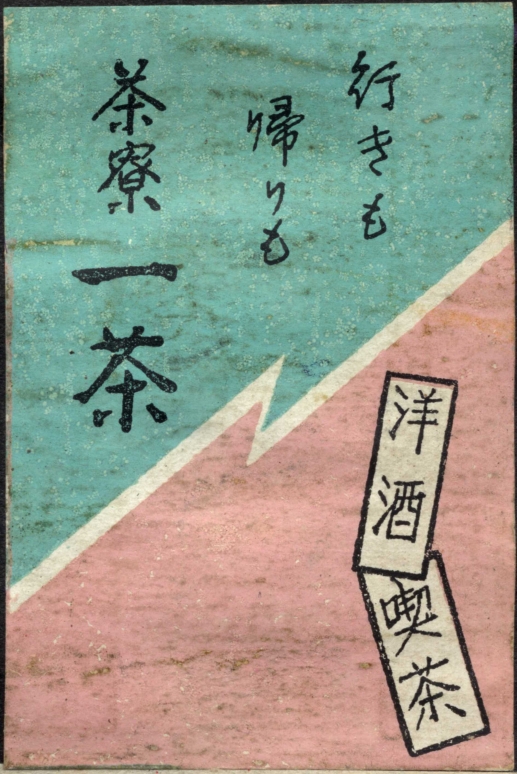 行きも
帰りも
茶寮
一茶
洋酒
喫茶